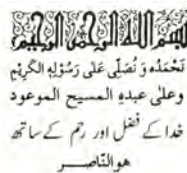 بسم اللہ الرحمٰن الرحیم
نَحْمَدُہٗ وَ نُصَلِّیْ عَلٰی رَسُوْلِہِ الْکَرِیْمِ
وعلٰی عبدہِ المسیح الموعود
خدا کے فضل اور رحم کے ساتھ
ھوالنّاصر